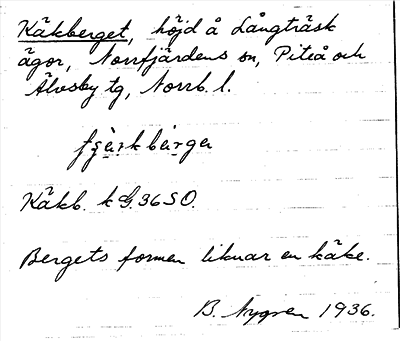 Käkberget, höjd å Långträsk
ägor, Norrfjärdens sn, Piteå och
Älvsby tg, Norrb. l.
Käkb. k G. 36 SO.
Bergets formen liknar en käke.
B. Nygren 1936.